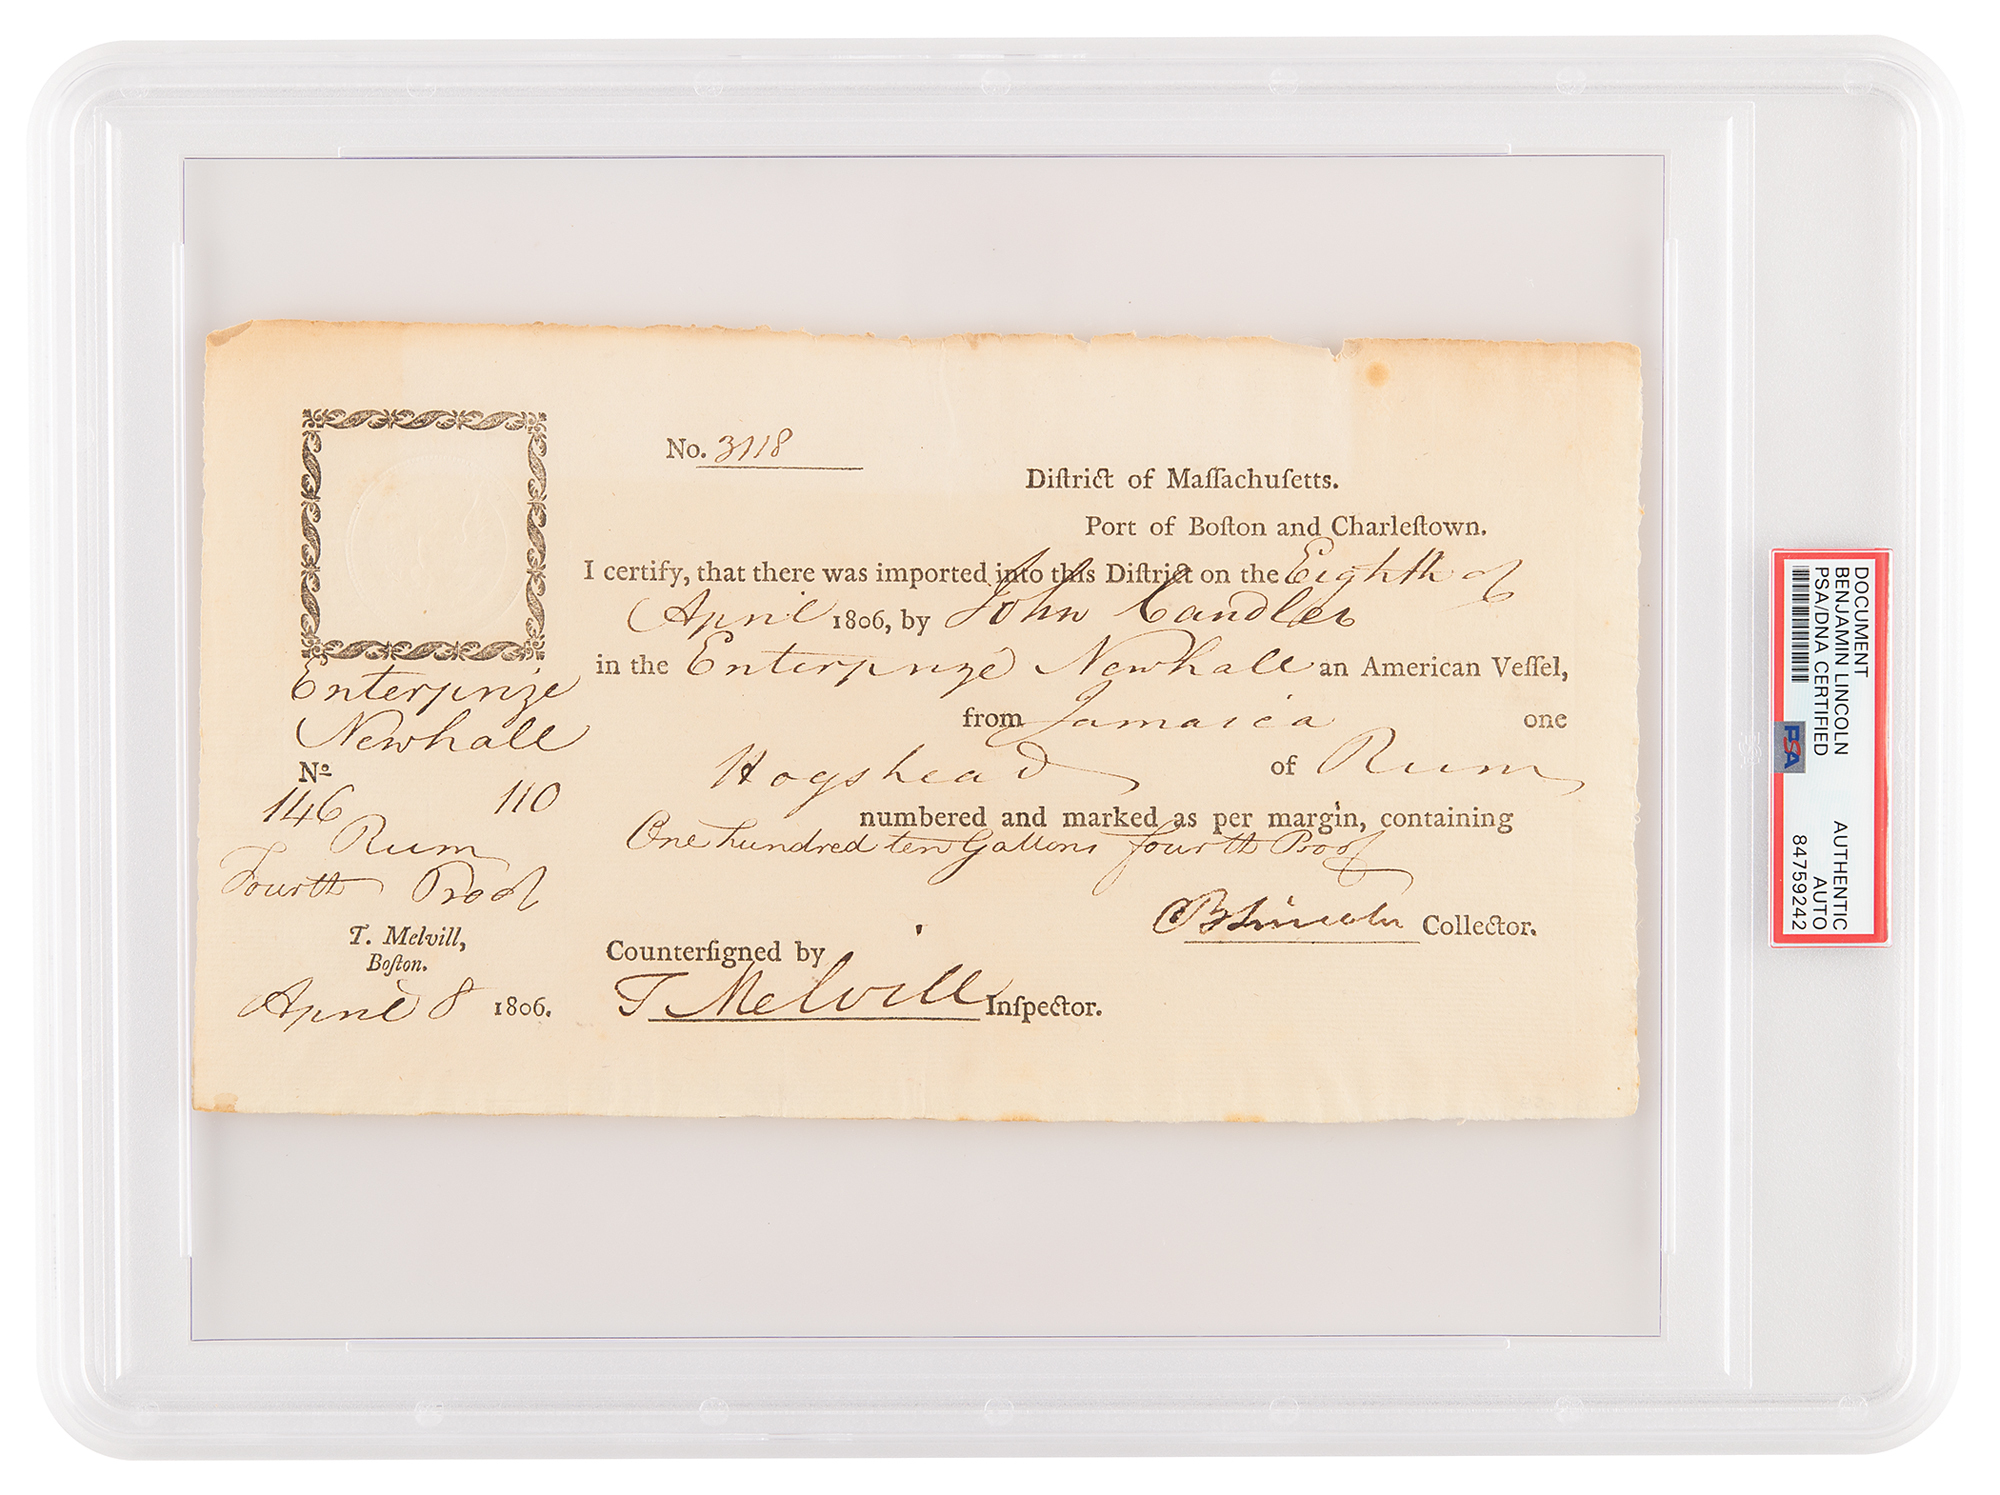 No. 3118
Diſtrict of Maſſachuſetts.
Port of Boſton and Charleſtown.
I certify, that there was imported into this Diſtrict on the Eighth of
April 1806, by John Candler
in the Enterprize Newhall an American Veſſel,
from Jamaica one
Hogshead of Rum
numbered and marked as per margin, containing
One hundred ten Gallons fourth Proof
B Lincoln Collector.
Counterſigned by
T Melvill Inſpector.
Enterprize
Newhall
No
146 110
Rum
Fourth Proof
T. Melvill,
Boſton.
April 8 1806.
DOCUMENT
BENJAMIN LINCOLN AUTHENTIC
PSA/DNA CERTIFIED AUTO
84759242
PSA